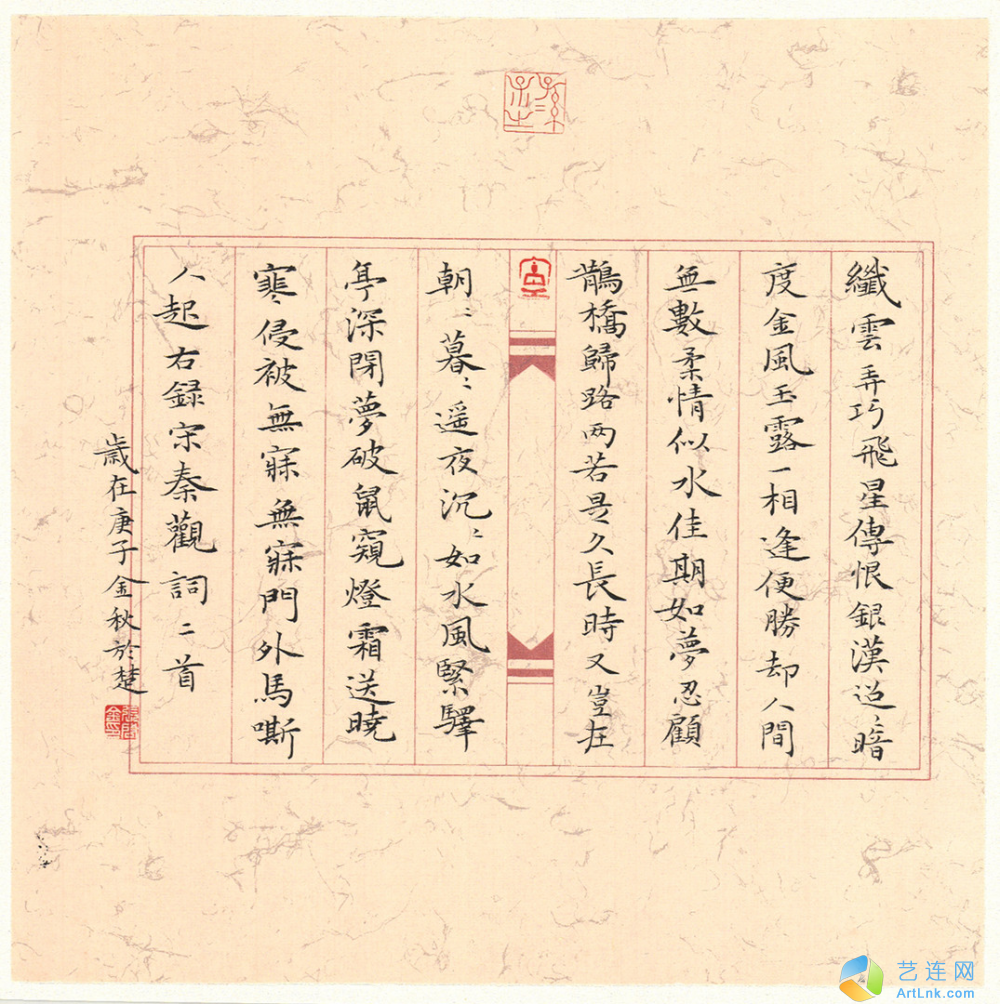 纖雲弄巧飛星傳恨銀漢迢〻暗
度金風玉露一相逢便勝却人間
無數柔情似水佳期如夢忍顧
鵲橋歸路两若是久長時又豈在
朝〻暮〻遥夜沉〻如水風緊驛
亭深閉夢破鼠窺燈霜送曉
寒侵被無寐無寐門外馬嘶
人起右録宋秦觀詞二首
歲在庚子金秋於楚
艺连网
ArtLnk.com